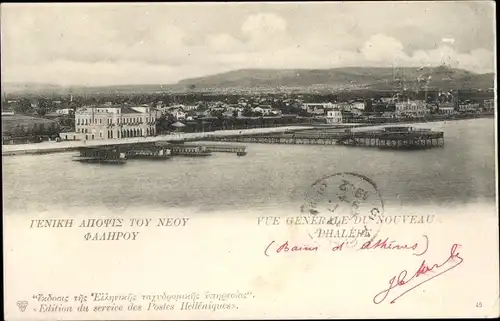 ΓΕΝΙΚΗ ΑΠΟΨΙΣ ΤΟΥ ΝΕΟΥ
ΦΑΛΗΡΟΥ
VUE GENERALE DU NOUVEAU
PHALÈRE
(Bains d'athènes)
"Ἔκδοσις τῆς Ἑλληνικῆς ταχυδρομικῆς ὑπηρεσίας".
«Edition du service des Postes Helléniques».